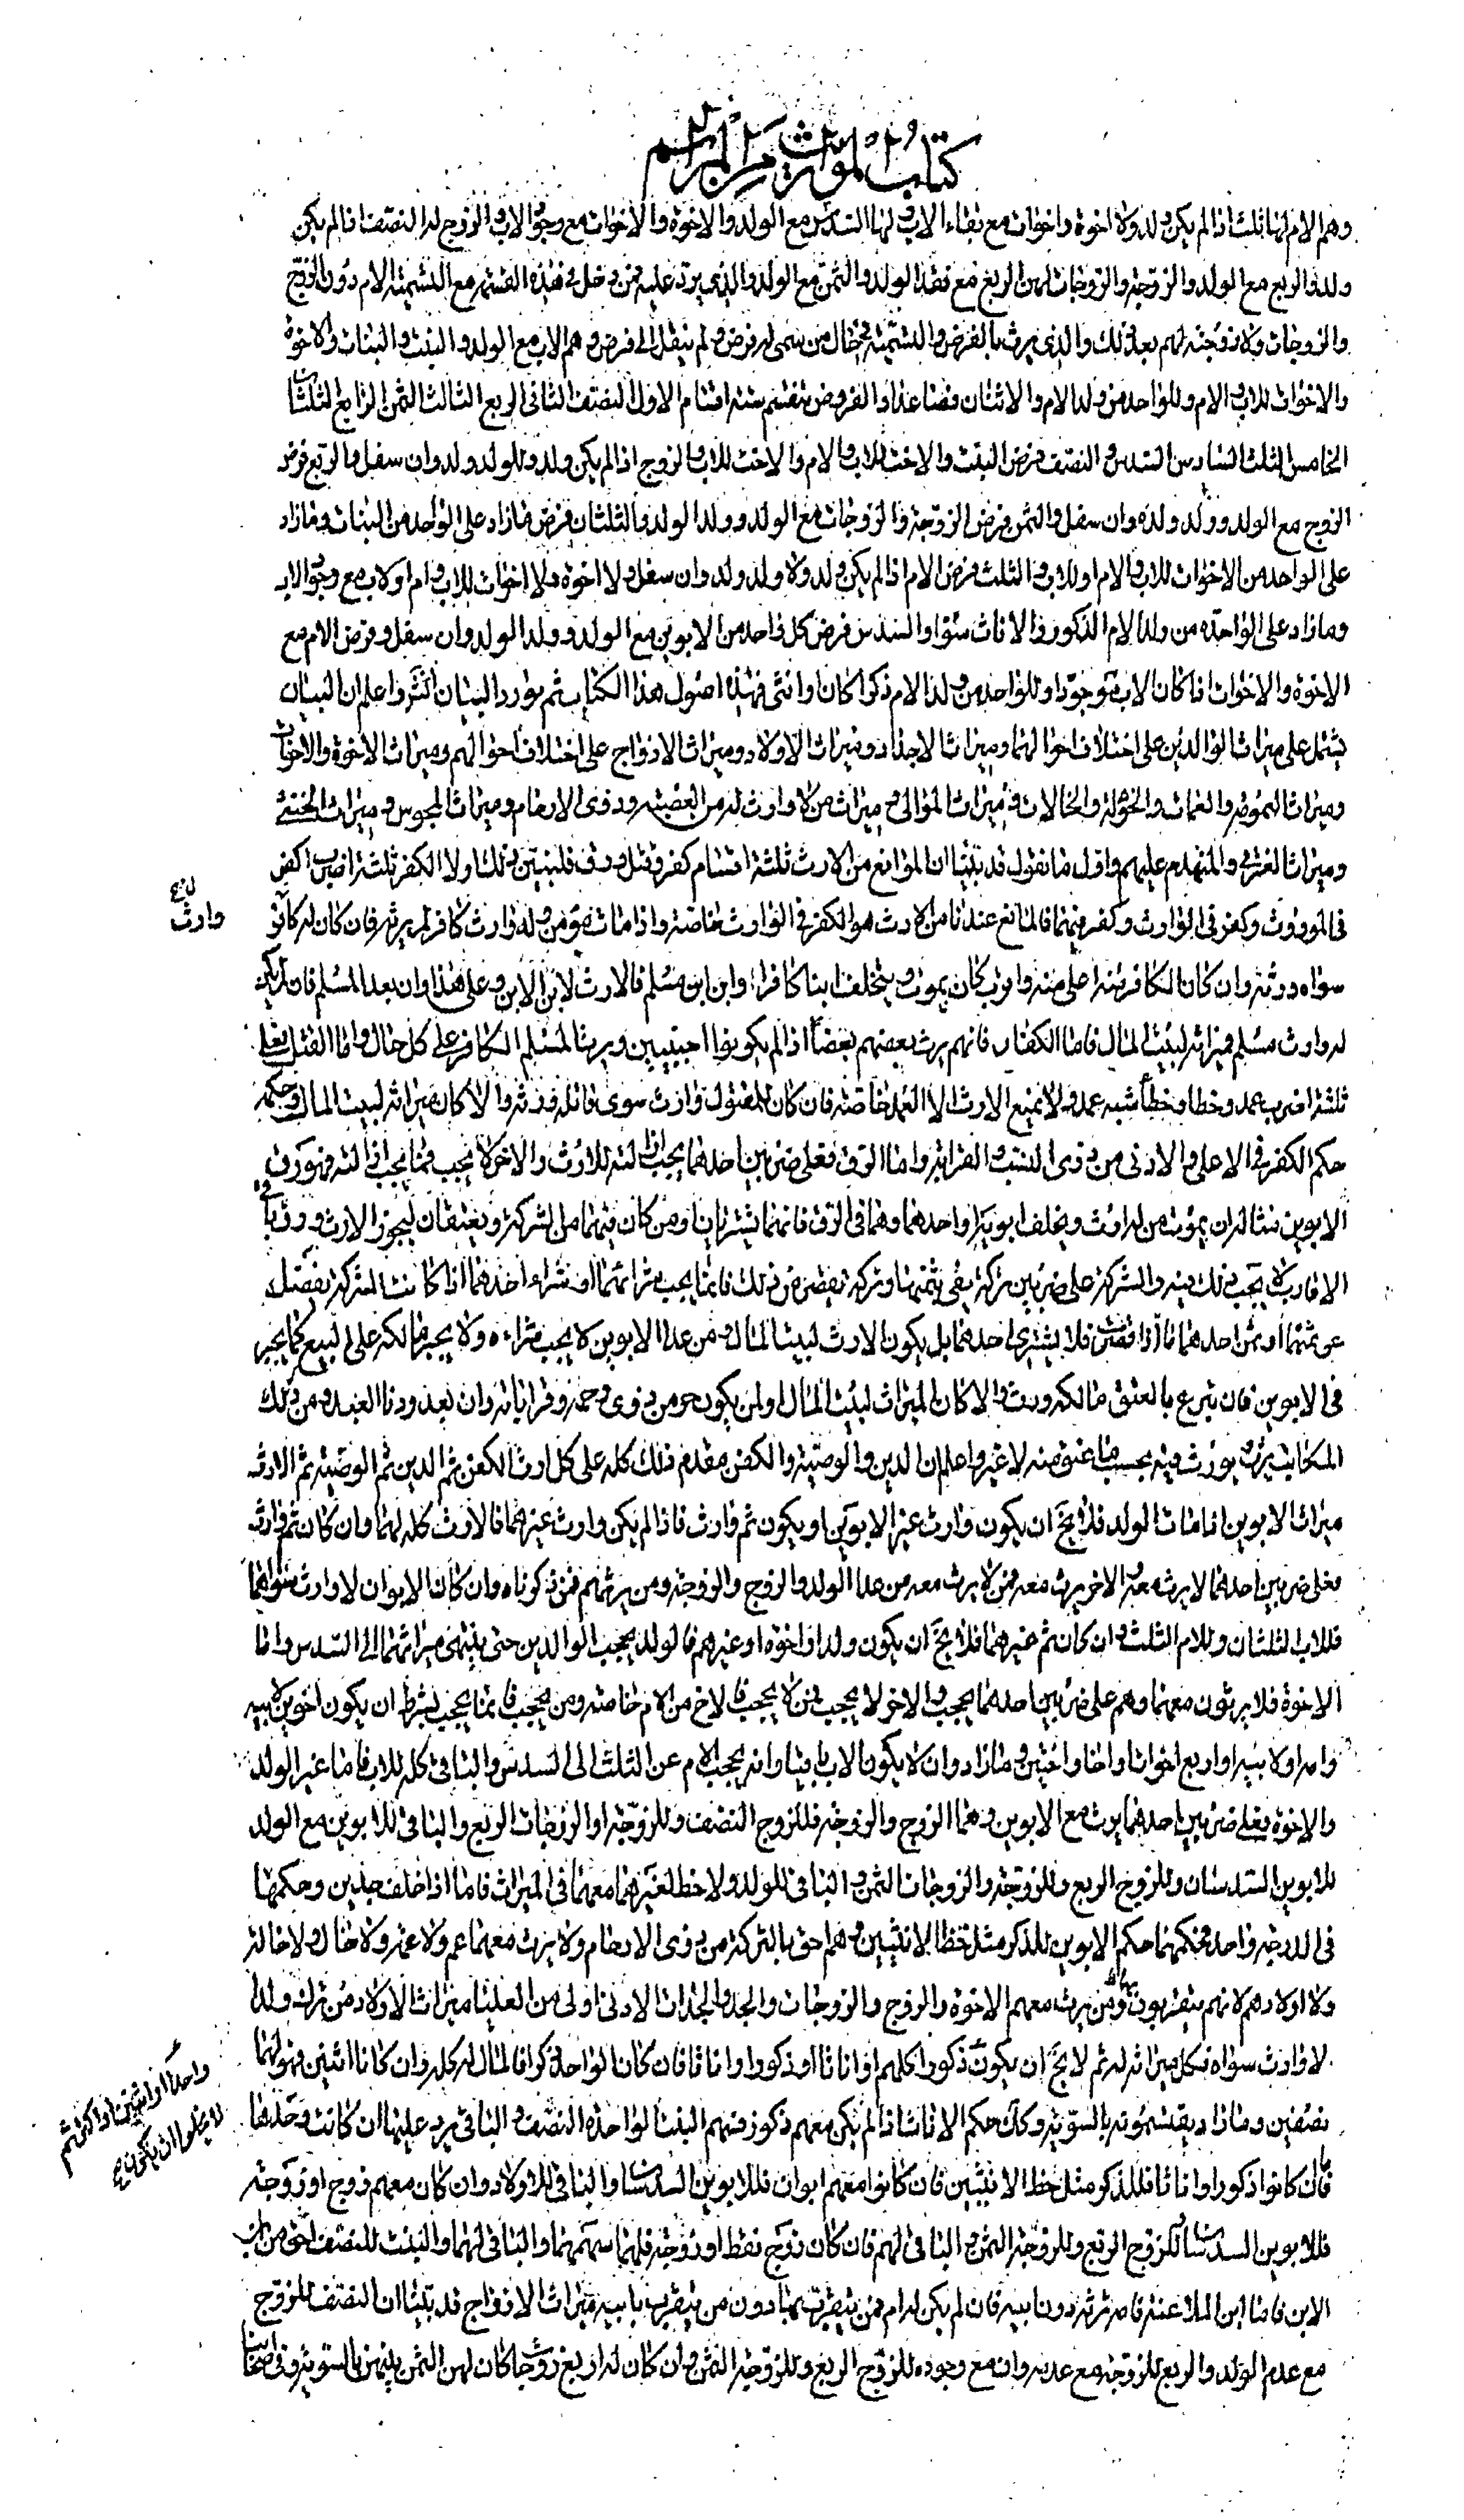 كتاب المواريث من المراسم
وهم الام لها ثلث اذا لم يكن ولد ولا اخوة واخوات مع بقاء الاب ولها السدس مع الولد والاخوة والاخوات مع وجود الاب والزوج له النصف اذا لم يكن
ولد والربع مع الولد والزوجة والزوجات لهن الربع مع فقد الولد والثمن مع الولد والذى يرد عليه من دخل فى هذه القسمة مع التسمية الام دون الزوج
والزوجات ولا زوجة لهم بعد ذلك والذى يرث بالفرض والتسمية فى حال من سمى له فرض ولم ينقل الى فرض وهم الاب مع الولد والبنت والبنات والاخوة
والاخوات للاب والام وللواحد من ولد الام والاثنان فصاعدا والفروض تنقسم ستة اقسام الاول النصف الثانى الربع الثالث الثمن الرابع الثلثان
الخامس الثلث السادس السدس والنصف فرض البنت والاخت للاب والام والاخت للاب والزوج اذا لم يكن ولد وللولد ولد وان سفل والربع فرض
الزوج مع الولد وولد ولده وان سفل والثمن فرض الزوجة والزوجات مع الولد وولد الولد والثلثان فرض مازاد على الواحد من البنات ومازاد
على الواحد من الاخوات للاب والام او للاب والثلث فرض الام اذا لم يكن ولد ولا ولد ولد وان سفل ولا اخوة ولا اخوات للاب وام او لاب مع وجود الاب
ومازاد على الواحدة من ولد الام الذكور والاناث سواء والسدس فرض كل واحد من الابوين مع الولد وولد الولد وان سفل وفرض الام مع
الاخوة والاخوات اذا كان الاب موجودا وللواحد من ولد الام ذكرا كان او انثى فهذه اصول هذا الكتاب ثم نورد البيان اكثر واعلم ان البيان
يشمل على ميراث الوالدين على اختلاف احوالهما وميراث الاجداد وميراث الاولاد وميراث الازواج على اختلاف احوالهم وميراث الاخوة والاخوات
وميراث العمومة والعمات والخولة والخالات وميراث الموالى وميراث من لا وارث له من العصبة وذوى الارحام وميراث المجوس وميراث الخنثى
وميراث الغرقى والمنهدم عليهم واول ما نقول قد بينا ان الموانع من الارث ثلثة اقسام كفر وقتل ورق فلنبين ذلك اولا الكفر ثلثة اضرب كفر
فى الموروث وكفر فى الوارث وكفر فيهما فالمانع عندنا من الارث هو الكفر فى الوارث خاصة واذا مات مؤمن وله وارث كافر لم يرثه فان كان له
وارث
سواه ورثه وان كان الكافر منه اعلى منه واقرب كان يموت ويتخلف ابنا كافرا وابن ابن مسلم فالارث لابن الابن وعلى هذا وان بعد المسلم فان لم يكن
له وارث مسلم فميراثه لبيت المال فاما الكفار فانهم يرث بعضهم بعضا اذا لم يكونوا اجنبيين ويرث المسلم الكافر على كل حال واما القتل فعلى
ثلثة اضرب عمد وخطا وخطأ شبيه عمد ولا يمنع الارث الا العمد خاصة فان كان للمقتول وارث سوى قاتله ورثه والا كان ميراثه لبيت المال وحكمه
حكم الكفر فى الاعلى والادنى من ذوى النسب والقرابة واما الرق فعلى ضربين احدهما يجب ازالته للارث والاخر لا يجب فما يجب ازالته فهو رق
الابوين مثاله ان يموت من له ارث ويخلف ابويه او احدهما وهما فى الرق فانهما يشتريان او من كان منهما من التركة ويعتقان ليحوز الارث ورق باقى
الاقارب لا يجب ذلك فيه والتركة على ضربين تركة يفى بثمنهما وتركة تقصر عن ذلك فانما يجب شرائهما او شراء احدهما اذا كانت التركة بفضل
عن ثمنهما او ثمن احدهما فاذا قصرت فلا يشترى احدهما بل يكون الارث لبيت المال ومن عدا الابوين لا يجب شراءه ولا يجبر مالكه على البيع كما يجبر
فى الابوين فان تبرع بالعتق مالكه ورث والا كان الميراث لبيت المال او لمن يكون حر من ذوى رحمه وقراباته وان بعد ودنا العبد ومن ذلك
المكاتب يرث ويورث منه بحسب ما عتق منه لا غير واعلم ان الدين والوصية والكفن مقدم ذلك كله على كل ارث الكفن ثم الدين ثم الوصية ثم الارث
ميراث الابوين اذا مات الولد فلا يخ ان يكون وارث غير الابوين او يكون ثم وارث فاذا لم يكن وارث غيرهما فالارث كله لهما وان كان ثم وارث
فعلى ضربين احدهما لا يرث معه والاخر يرث معه فمن لا يرث معه من عدا الولد والزوج والزوجة ومن يرثهم فمن ذكرناه وان كان الابوان لا وارث سواهما
فللاب الثلثان وللام الثلث وان كان ثم غيرهما فلا يخ ان يكون ولدا او اخوة او غيرهم فالولد يحجب الوالدين حتى ينتهى ميراثهما الى السدس واما
الاخوة فلا يرثون معهما وهم على ضربين احدهما يحجب والاخر لا يحجب فمن لا يحجب فالاخ من الام خاصة ومن يحجب فانما يحجب بشرط ان يكون اخوين لابيه
وامه او لابيه او اربع اخوات او اخا واختين ومازاد وان لا يكون الاب باقيا وانه يحجب الام عن الثلث الى السدس والباقى كله للاب فاما غير الولد
والاخوة فعلى ضربين احدهما يرث مع الابوين وهما الزوج والزوجة فللزوج النصف وللزوجة او الزوجات الربع والباقى للابوين مع الولد
للابوين السدسان وللزوج الربع وللزوجة والزوجات الثمن والباقى للولد ولا حظ لغيرهما معهما فى الميراث فاما اذا خلف جدين وحكمهما
فى الدرجة واحد فحكمهما حكم الابوين للذكر مثل حظ الانثيين وهم احق بالتركة من ذوى الارحام ولا يرث معهما عم ولا عمة ولا خال ولا خالة
ولا اولادهم لانهم يتقربون بهما ومن يرث معهم الاخوة والزوج والزوجات والجد والجدات الادنى اولى من العليا ميراث الاولاد من ترك ولدا
لا وارث سواه فكل ميراثه له ثم لا يخ ان يكون ذكورا كلهم او اناثا او ذكورا واناثا فان كان الواحد ذكرا فالمال له كله وان كانا اثنين فهو لهما
واحدا او اثنين او اكثر ثم
لا يخلوا ان يكون
نصفين ومازاد يقتسمونه بالسوية وكك حكم الاناث اذا لم يكن معهم ذكور فسهم البنت الواحدة النصف والباقى يرد عليها ان كانت وحدها
فان كانوا ذكورا واناثا فللذكر مثل حظ الانثيين فان كانوا معهم ابوان فللابوين السدسان والباقى للاولاد وان كان معهم زوج او زوجة
فللابوين السدسان وللزوج الربع وللزوجة الثمن والباقى لهم فان كان زوج فقط او زوجة فلهما سهمهما والباقى لهما والبنت للنصف احق من ابن
الابن فاما ابن الملاعنة فامه ترثه دون ابيه فان لم يكن له ام فمن يتقرب بها دون من يتقرب بابيه ميراث الازواج قد بينا ان النصف للزوج
مع عدم الولد والربع للزوجة مع عدمه وان مع وجوده للزوج الربع وللزوجة الثمن وان كان له اربع زوجات كان لهن الثمن بينهن بالسوية وفى اصحابنا